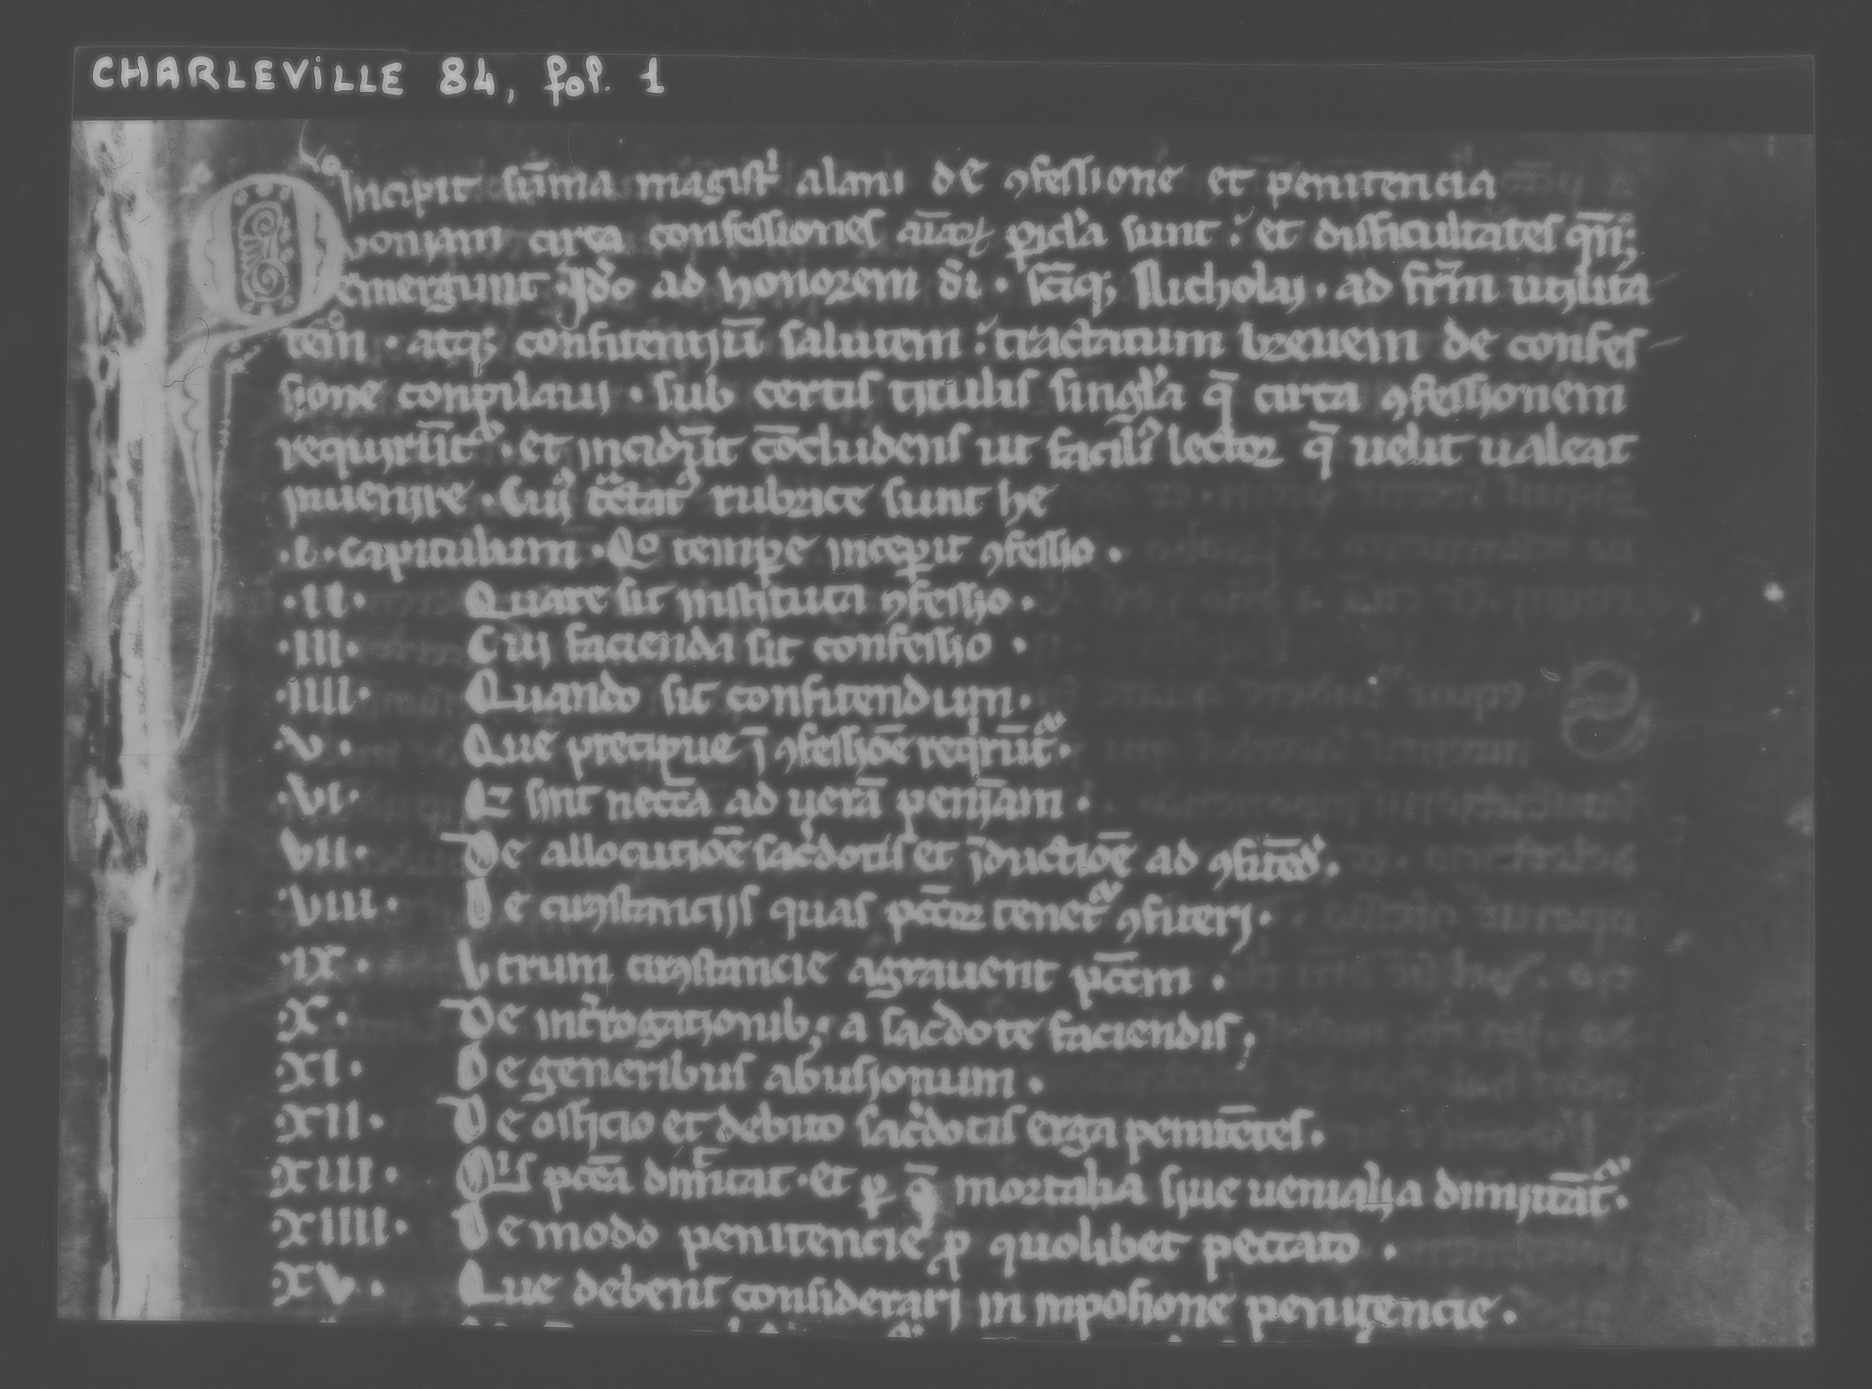 CHARLEVILLE 84, fol. 1
Incipit sūma magist̾ alani de ꝯfessione et penitencia
Quoniam circa confessiones aīaꝝ ꝑicl̾a sunt : et difficultates
emergunt . Ido ad honorem di . scīqꝫ Nicholaj . ad frm̄ utilita
tem . atqꝫ confitentiū salutem : tractatum breuem de confes
sione conpilaui . sub certis titulis singl̾a q̄ circa ꝯfessionem
requirūt᷑ . et incidūt cōcludens ut facili᷒ lector q̄ uelit ualeat
inuenire . Cui᷒ rubrice sunt he
.I. capitulum . Qo tempe inceꝑit ꝯfessio .
.II. Quare sit instituta ꝯfessio .
.III. Cui facienda sit confessio .
.IIII. Quando sit confitendum .
.V. Que precipue ī ꝯfessiōe reqirūt᷑ .
.VI. Q sint neccā ad uerā peniām .
VII. De allocutiōe sac̾dotis et īductiōe ad ꝯfitēd .
VIII. De circūstanciis quas pccor tenet᷑ ꝯfiteri .
IX. Vtrum circūstancie agrauent pccm .
X. De int̾rogationibꝫ a sac̾dote faciendis ,
XI. De generibus abusionum .
XII. De officio et debito sac̾dotis erga penitētes .
XIII. Qis pccā dimittat . et ꝑ q̄ mortalia siue uenialia dimitāt᷑ .
XIIII. De modo penitencie ꝓ quolibet peccato .
XV. Que debent considerari in inposione penitencie .